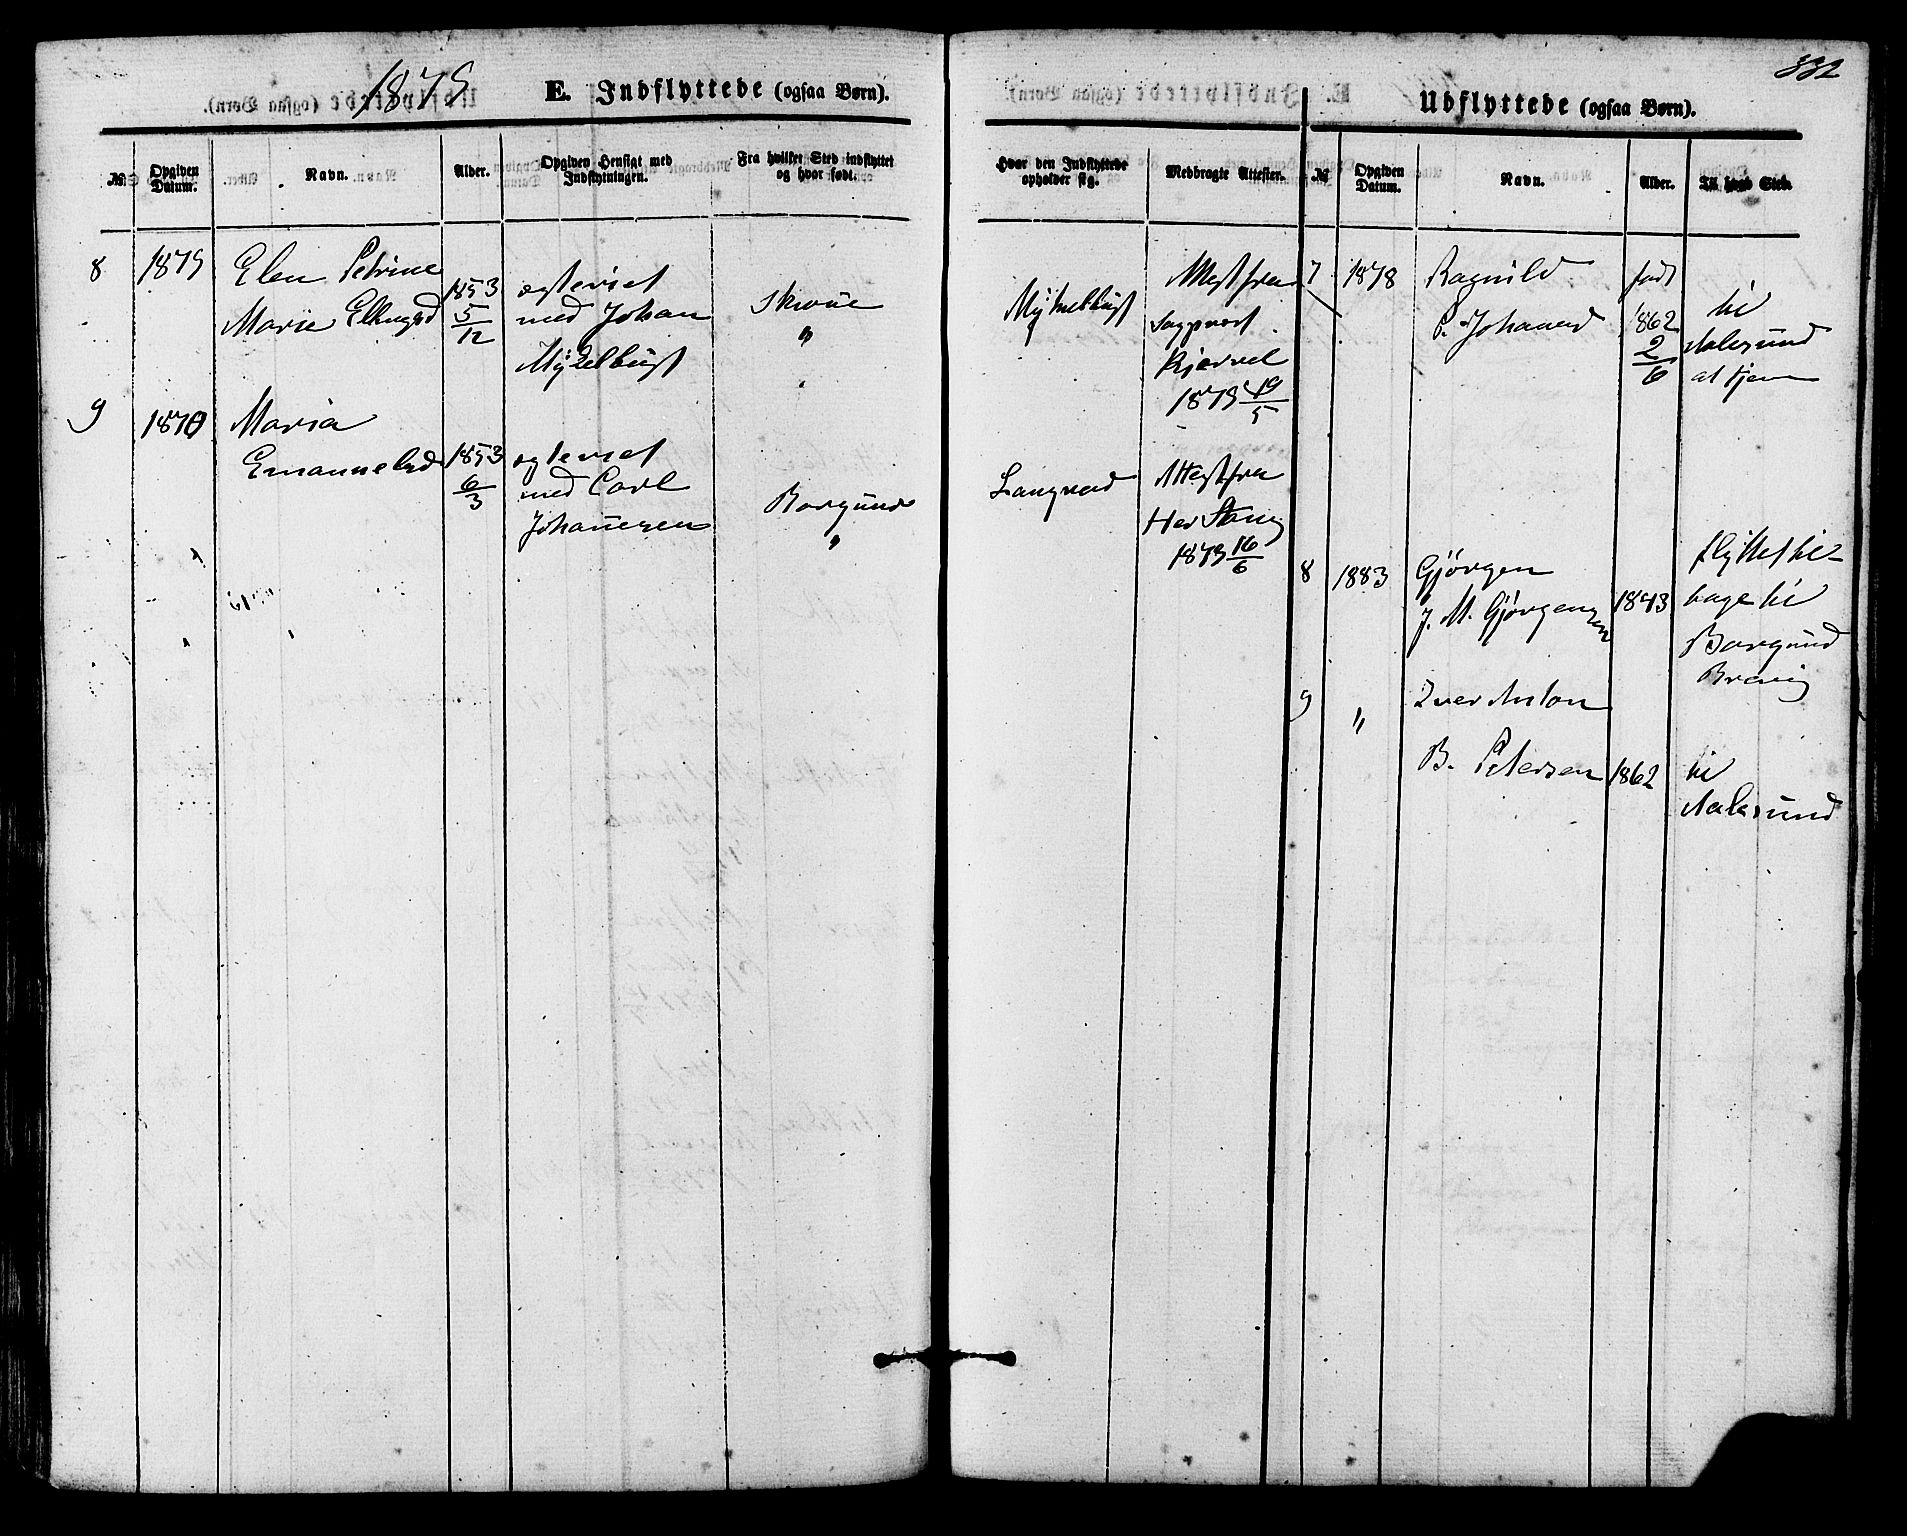 1875
E. Indflyttede (ogsaa Børn).
№
Opgiven Datum.
Navn.
Alder.
Opgiven Hensigt med Indflytningen.
Fra hvilket Sted indflyttet og hvor født.
8 1875 Elen Petrine
Marie Ellingsd
1853
5/12
egteviet
med Johan
Myklebust
Skroue
"
9 1870 Maria
Emanuelsd
1853
6/3
egteviet
med Carl
Johanesen
Borgund
"
332
Udflyttede (ogsaa Børn).
Hvor den Indflyttede opholder sig.
Medbragte Attester.
№
Opgiven Datum.
Navn.
Alder.
Til hvad Sted.
Myklebust
Attest fra
Sogpræst
Kjervel
1875 19/5
Langvad
Attest fra
Her Stang
1873 16/6
7 1878 Ragnild
P. Johanesd
født
1862
2/6
til
Aalesund
at tjene
8 1883 Gjørgen
J. M. Gjørgensen
1843
flyttet til-
bage til
Borgund
9 " Iver Anton
B. Petersen 1862
til
Aalesund